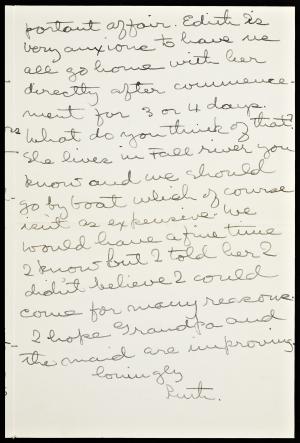 portant affair. Edith is
very anxious to have us
all go home with her
directly after commence-
ment for 3 or 4 days.
What do you think of that?
She lives in Fall river you
know and we should
go by boat which of course
isn't as expensive. We
would have a fine time
I know but I told her I
didn't believe I could
come for many reasons.
I hope Grandpa and
the maid are improving.
Lovingly
Ruth.